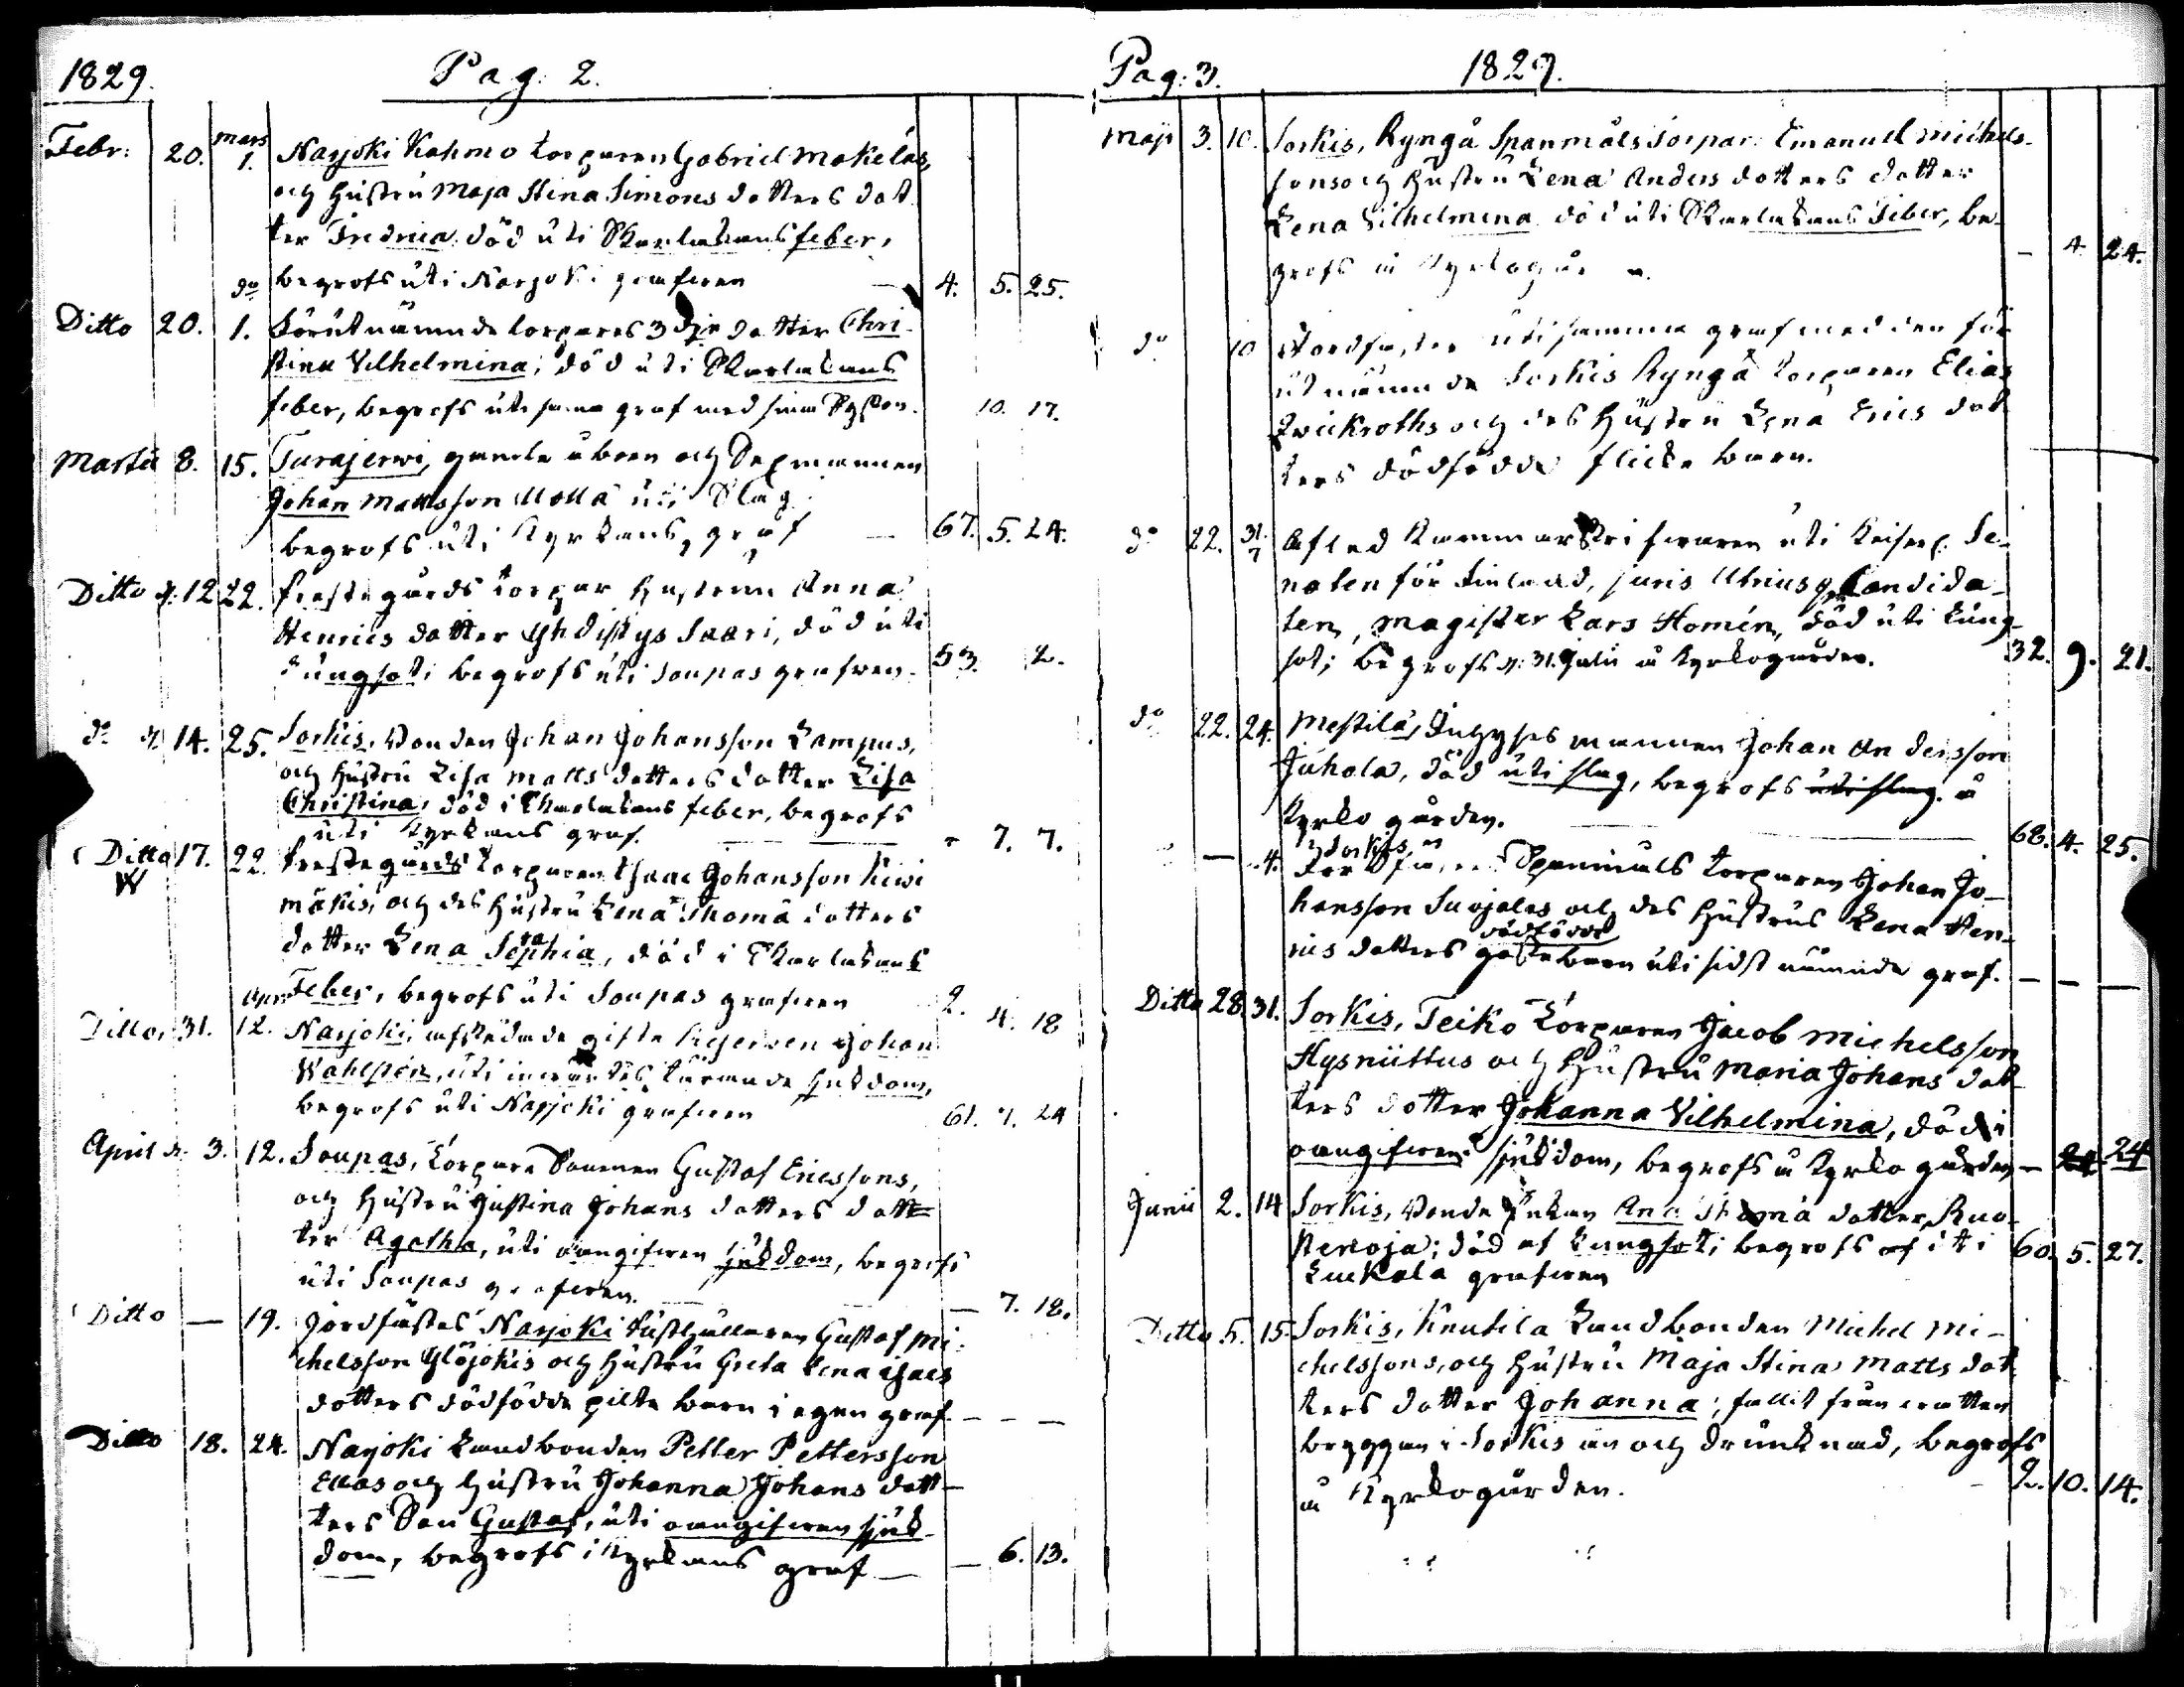 1829. Pag: 2.
Febr: 20. Mars 1. Narjoki Kahmo Torparen Gabriel Makeläs,
och Hustru Maja Stina Simons dotters dot
ter Fredrica död uti Skarlakans feber,
do begrofs uti Narjoki grafwen — 4. 5. 25.
Ditto 20. 1. Förutnämnde torpares 3dje dotter Chri-
stina Vilhelmina, död uti Skarlakans
feber, begrofs uti samma graf med sina Syskon. 10. 17.
Martii 8. 15. Turajerwi, gamle åboen och Sexmannen
Johan Mattsson Mollä uti Slag
begrofs uti Kyrkans graf — 67. 5. 24.
Ditto d. 12 22. Prestegårds Torpar Hustrun Anna
Henrics dotter Yhdistys Saari, död uti
Lungsot; begrofs uti Soupas grafwen. 53. 2.
do d. 14. 25. Sorkis, Bonden Johan Johansson Lampus,
och Hustru Lisa Matts dotters dotter Lisa
Christina, död i Skarlakans feber, begrofs
uti Kyrkans graf. — 7. 7.
Ditto 17. 22. Prestegårds Torparen Isaac Johansson Kiwi
mäkis, och des Hustru Lena Thomä dotters
dotter Lena Sophia, död i Skarlakans
Apr. Feber, begrofs uti Soupas grafwen 2. 4. 18
Ditto, 31. 12. Narjoki, afskedade gifte Rysseren Johan
Wahlsten, uti inwärtes tärande sjukdom,
begrofs uti Narjoki grafwen 61. 7. 24
April d. 3. 12. Soupas, Torpare Sonen Gustaf Ericssons,
och Hustru Justina Johans dotters dott=
ter Agatha, uti oangifwen sjukdom, begrofs
uti Soupas grafwen. — 7. 18.
Ditto — 19. Jordfästes Narjoki Gustaf Mi-
chelsson Ylöjokis och Hustru Greta Lena Isacs
dotters dödfödde pilte barn i egen graf. — — —
Ditto 18. 24. Narjoki Landbonden Petter Pettersson
Ellas och Hustru Johanna Johans dott-
ters Son Gustaf, uti oangifwen sjuk-
dom, begrofs i Kyrkans graf — — 6. 13.
Pag: 3. 1829.
Maji 3. 10. Sorkis, Ryngå Spanmåls Torpar. Emanuel Michels-
sons och Hustru Lena Anders dotters dotter
Lena Vilhelmina död uti Skarlakans Feber, be-
grofs å Kyrkogår n. — 4. 24.
do 10 Jordfästes uti samma graf med den för
utnämnde Sorkis Ryngå Torparen Elias
Qwickroths och des Hustru Lena Erics dot
ters dödfödde flicke barn. —
do 22. 31. 7 Afled Kammarskrifwaren uti Keiserl. Se-
naten för Finland, juris Utriusq. Candida-
ten, Magister Lars Homén, död uti Lung-
sot; begrofs d. 31. Julii å Kyrkogården. 32. 9. 21.
do 22. 24. Mestilä, Inhyses mannen Johan Andersson
Juhola, död uti slag, begrofs uti slag. å
Kyrko gården. — 68. 4. 25.
— 4. Sorkis Spanmåls Torparen Johan Jo-
hansson Suojalas och des Hustrus Lena Hen-
rics dotters dödfödde gossebarn uti sidst nämnde graf. — — —
Ditto 28. 31. Sorkis, Teiko Torparen Jacob Michelsson
Hysniittus och Hustru Maria Johans dot-
ters dotter Johanna Vilhelmina, död i
oangifwen sjukdom, begrofs å Kyrko gården — 24 24
Junii 2. 14 Sorkis, Bonde Enkan Ana Thomä dotter Ruo-
stenoja; död af Lungsot; begrofs af iti 60. 5. 27.
Luckala grafwen
Ditto 5. 15. Sorkis, Knutila Landbonden Michel Mi-
chelssons, och Hustru Maja Stina Matts dot
ters dotter Johanna; fallit från watten
bryggan i Sorkis ån och drunknad, begrofs
å Kyrkogården. — 2. 10. 14.